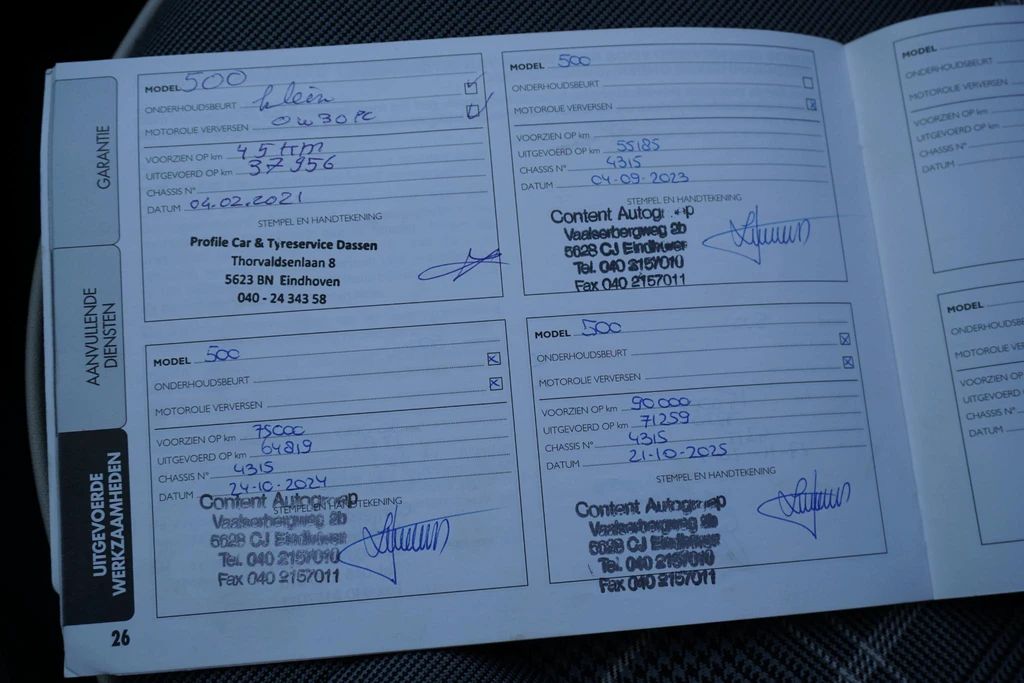 GARANTIE
AANVULLENDE
DIENSTEN
UITGEVOERDE
WERKZAAMHEDEN
26
MODEL 500
ONDERHOUDSBEURT klein
MOTOROLIE VERVERSEN 0w30 FC
VOORZIEN OP km 45 tkm
UITGEVOERD OP km 37 956
CHASSIS N°
DATUM 04.02.2021
STEMPEL EN HANDTEKENING
Profile Car & Tyreservice Dassen
Thorvaldsenlaan 8
5623 BN Eindhoven
040 - 24 343 58
MODEL 500
ONDERHOUDSBEURT
MOTOROLIE VERVERSEN
VOORZIEN OP km
UITGEVOERD OP km 55185
CHASSIS N° 4315
DATUM 04-09-2023
STEMPEL EN HANDTEKENING
Content Autogroep
Vaalserbergweg 2b
5628 CJ Eindhoven
Tel. 040 2157010
Fax 040 2157011
MODEL 500
ONDERHOUDSBEURT
MOTOROLIE VERVERSEN
VOORZIEN OP km 75000
UITGEVOERD OP km 64819
CHASSIS N° 4315
DATUM 24-10-2024
STEMPEL EN HANDTEKENING
Content Autogroep
Vaalserbergweg 2b
5628 CJ Eindhoven
Tel. 040 2157010
Fax 040 2157011
MODEL 500
ONDERHOUDSBEURT
MOTOROLIE VERVERSEN
VOORZIEN OP km 90000
UITGEVOERD OP km 71259
CHASSIS N° 4315
DATUM 21-10-2025
STEMPEL EN HANDTEKENING
Content Autogroep
Vaalserbergweg 2b
5628 CJ Eindhoven
Tel. 040 2157010
Fax 040 2157011
MODEL
ONDERHOUDSBEUR
MOTOROLIE VERVERSEN
VOORZIEN OP km
UITGEVOERD OP km
CHASSIS N°
DATUM
MODEL
ONDERHOUDSBE
MOTOROLIE VER
VOORZIEN OP
UITGEVOERD O
CHASSIS N°
DATUM